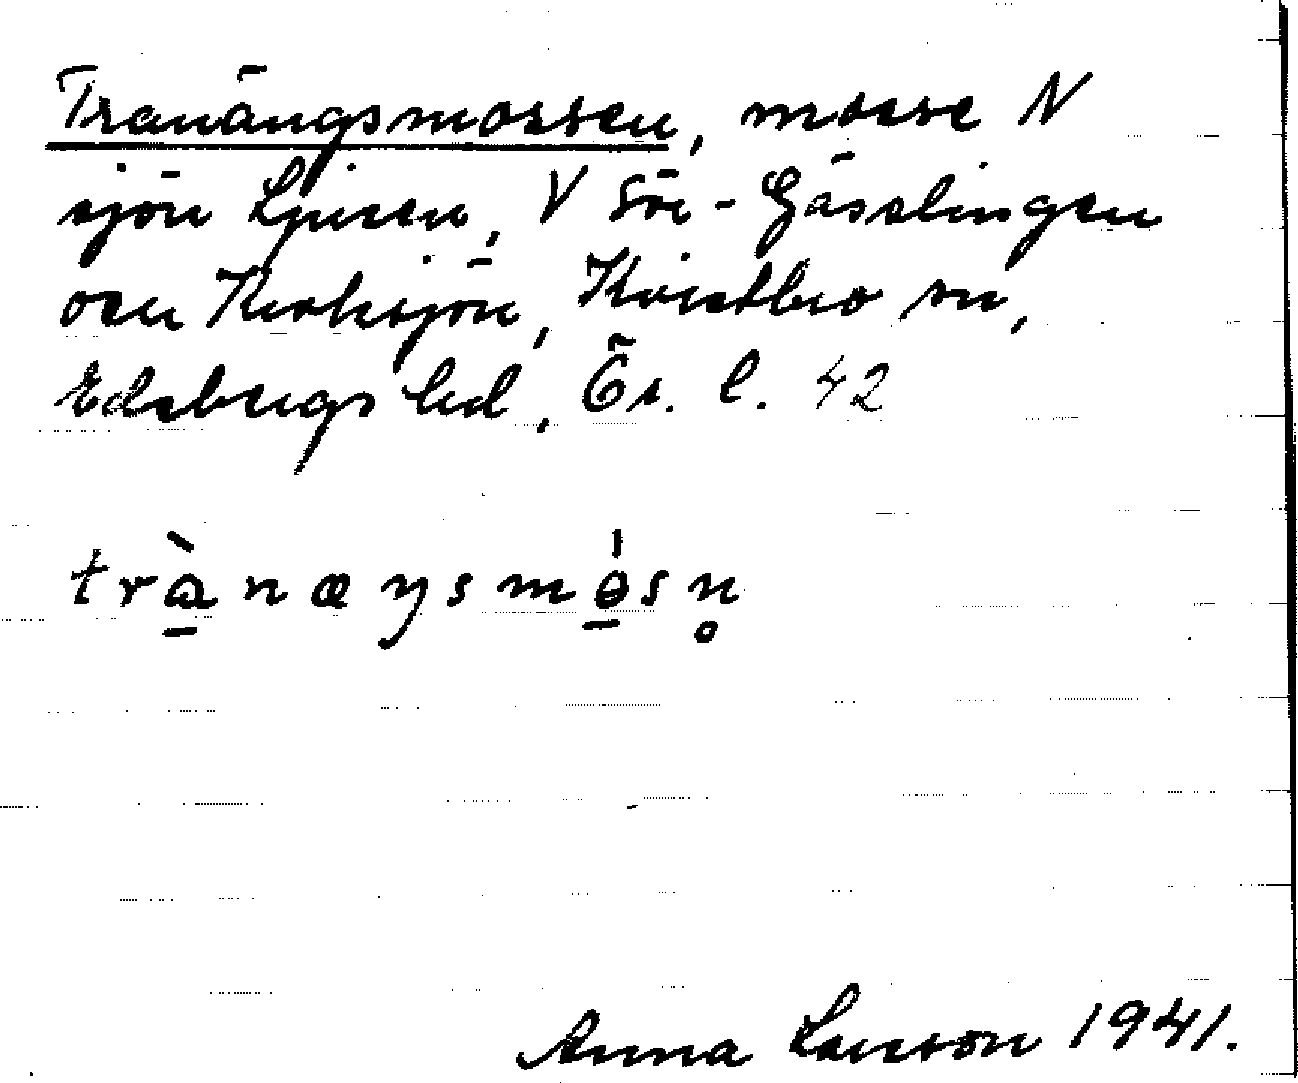 Tranängsmossen, mosse N
sjön Ljusen, V Sör-Gässlingen
och Kroksjön, Kvistbro sn,
Edsbergs hd, Ör. l. 42
trànæŋsmɵ́sn̥
Anna Larsson 1941.